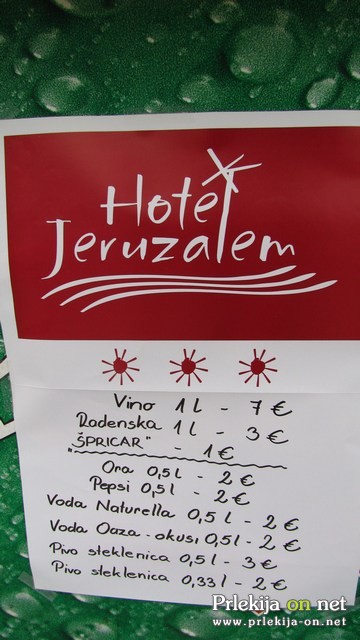 Hotel
Jeruzalem
Vino 1l - 7€
Radenska 1l - 3€
"ŠPRICAR" - 1€
Ora 0,5l - 2€
Pepsi 0,5l - 2€
Voda Naturella 0,5l - 2€
Voda Oaza-okusi 0,5l - 2€
Pivo steklenica 0,5l - 3€
Pivo steklenica 0,33l - 2€
Prlekija-on.net
www.prlekija-on.net